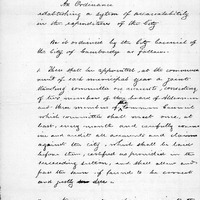 An Ordinance
establishing a system of accountability
in the expenditures of the City
Be it ordained by the City Council of
the City of Cambridge as follows:
1. There shall be appointed, at the commence
ment of each municipal year a joint
standing committee on accounts, consisting
of two members of the board of Aldermen
and three of the Common Council
which committee shall meet once, at
least, every month and carefully exam
ine and audit all accounts and claims
against the city, which shall be laid
before them, certified as prescribed in the
succeeding section, and shall allow and
pass the same if found to be correct
and justly due.